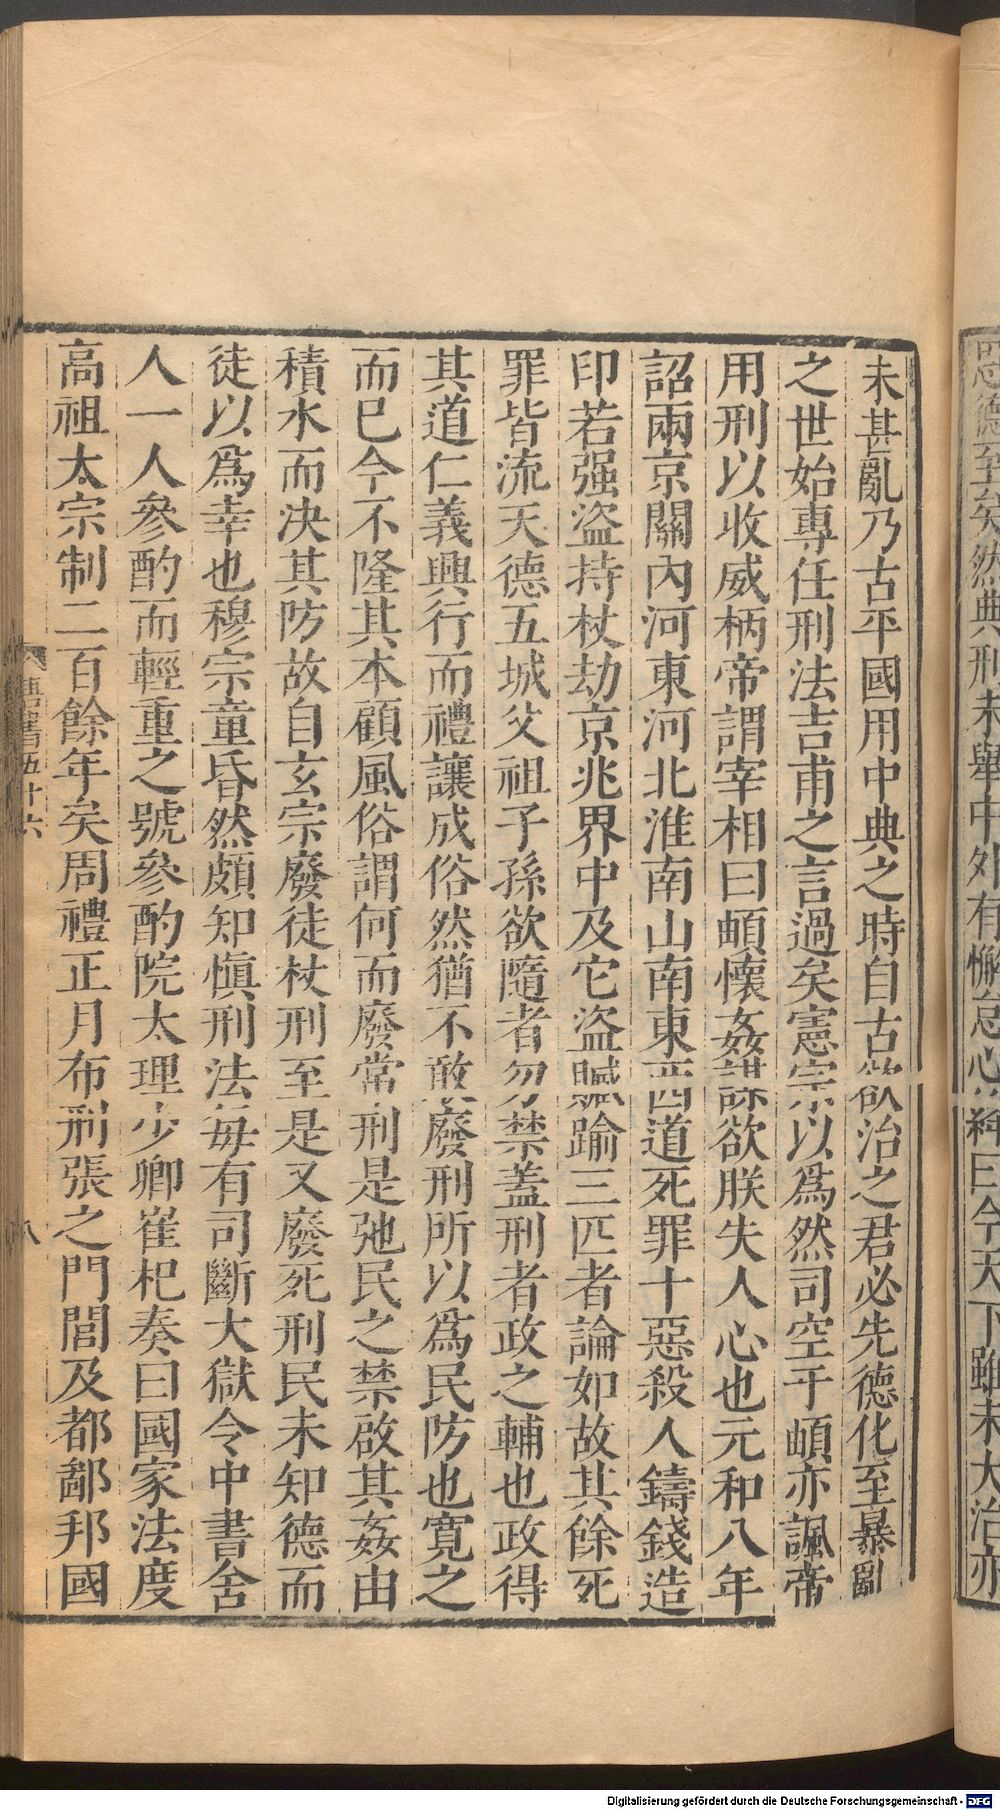 未甚亂乃古平國用中典之時自古欲治之君必先德化至暴亂
之世始專任刑法吉甫之言過矣憲宗以爲然司空于頔亦諷帝
用刑以收威柄帝謂宰相曰頔懷姦謀欲朕失人心也元和八年
詔兩京關內河東河北淮南山南東西道死罪十惡殺人鑄錢造
印若强盜持杖劫京兆界中及它盜贓踰三匹者論如故其餘死
罪皆流天德五城父祖子孫欲隨者勿禁蓋刑者政之輔也政得
其道仁義興行而禮讓成俗然猶不敢廢刑所以爲民防也寬之
而已今不隆其本顧風俗謂何而廢常刑是弛民之禁啟其姦由
積水而決其防故自玄宗廢徒杖刑至是又廢死刑民未知德而
徒以爲幸也穆宗童昏然頗知愼刑法每有司斷大獄令中書舍
人一人參酌而輕重之號參酌院大理少卿崔杞奏曰國家法度
高祖太宗制二百餘年矣周禮正月布刑張之門閭及都鄙邦國
書五十六
八
恩德至矣然典刑未舉中外有懈怠心絳曰今天下雖未大治亦
Digitalisierung gefördert durch die Deutsche Forschungsgemeinschaft - DFG